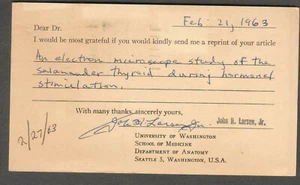 Feb 21, 1963
Dear Dr.
I would be most grateful if you would kindly send me a reprint of your article
An electron microscope study of the
salamander thyroid during hormonal
stimulation.
With many thanks, sincerely yours,
John H. Larsen, Jr.
John H. Larsen, Jr.
2/27/63
UNIVERSITY OF WASHINGTON
SCHOOL OF MEDICINE
DEPARTMENT OF ANATOMY
SEATTLE 5, WASHINGTON, U.S.A.